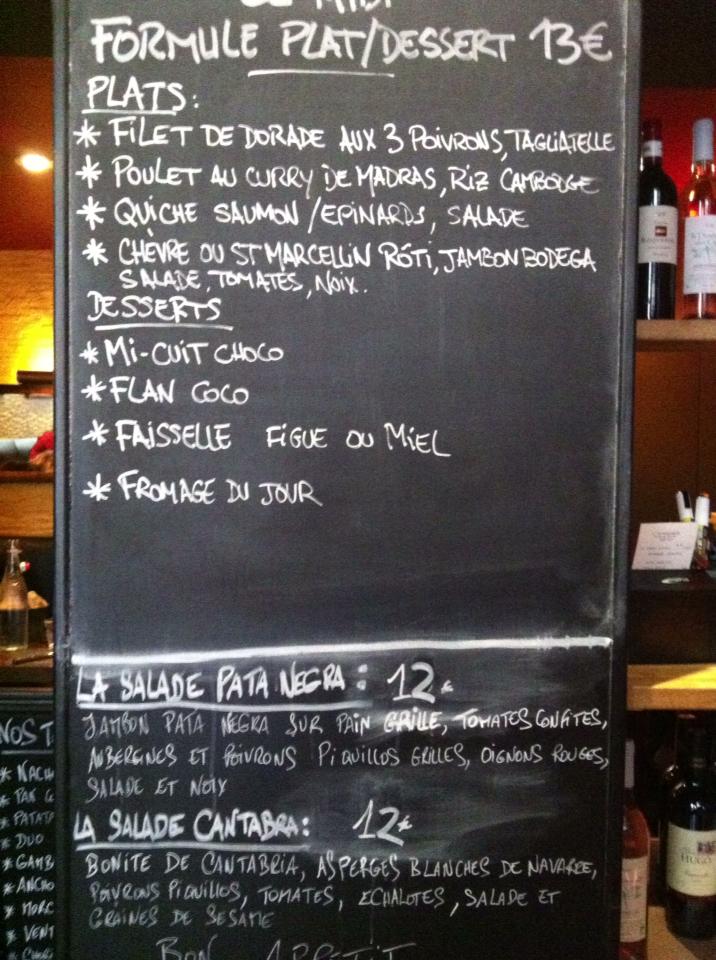 MIDI
FORMULE PLAT/DESSERT 13€
PLATS:
* FILET DE DORADE AUX 3 POIVRONS, TAGLIATELLE
* POULET AU CURRY DE MADRAS, RIZ CAMBODGE
* QUICHE SAUMON/EPINARDS, SALADE
* CHÈVRE OU ST MARCELLIN RÔTI, JAMBON BODEGA
SALADE, TOMATES, NOIX.
DESSERTS
* MI-CUIT CHOCO
* FLAN COCO
* FAISSELLE FIGUE OU MIEL
* FROMAGE DU JOUR
LA SALADE PATA NEGRA: 12€
JAMBON PATA NEGRA SUR PAIN GRILLE, TOMATES CONFITES,
AUBERGINES ET POIVRONS PIQUILLOS GRILLES, OIGNONS ROUGES,
SALADE ET NOIX
LA SALADE CANTABRA: 12€
BONITE DE CANTABRIA, ASPERGES BLANCHES DE NAVARRE,
POIVRONS PIQUILLOS, TOMATES, ECHALOTES, SALADE ET
GRAINES DE SESAME
BON APPETIT
NOS T
* NACH
* PAN
* PATATA
* DUO
* GAMB
* ANCHO
* MORC
* VENT
HUGO